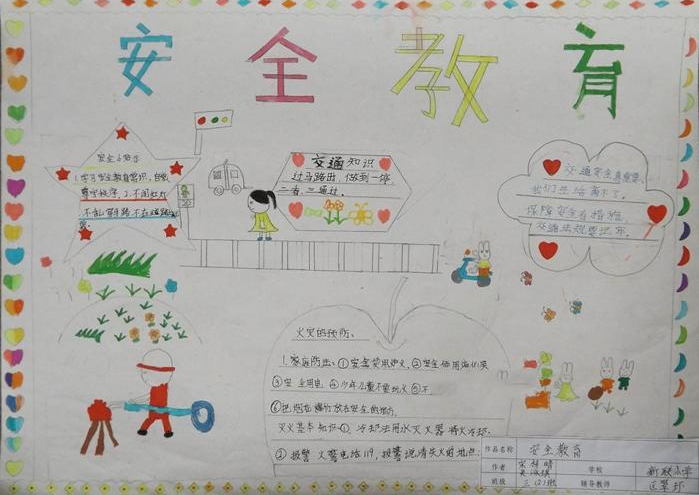 安全教育
安全小顺序
1.学习安全教育常识，自觉
遵守秩序，2.不闯红灯
不乱穿马路不在道路
交通知识
过马路出，做到一停
二看，三通过。
交通安全真重要，
我们生活离不了。
保障安全有措施
交通法规要记牢。
火灾的预防、
1.家庭防火：①安全使用炉火，②安全使用液化气
③安全用电，④少年儿童不要玩火⑤不
⑥把烟花爆竹放在安全的地方
灭火基本知识：①、冷却法用水灭火器将火冷却。
②报警火警电话119，报警说清失火的地点
作品名称 安全教育
作者 学校 新联小学
班级 三(2)班 辅导教师